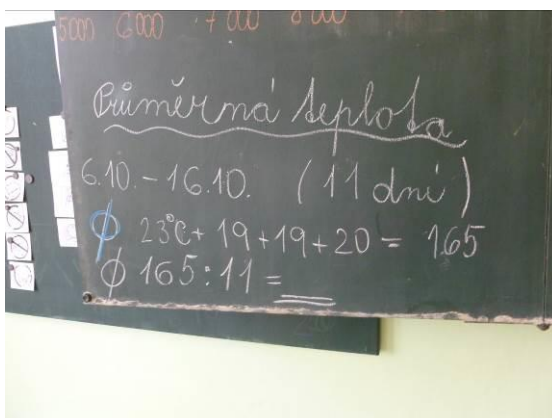 5000 6000 7000 8000
Průměrná teplota
6.10. - 16.10. (11 dní)
Ø 23°C + 19 + 19 + 20 = 165
Ø 165 : 11 =